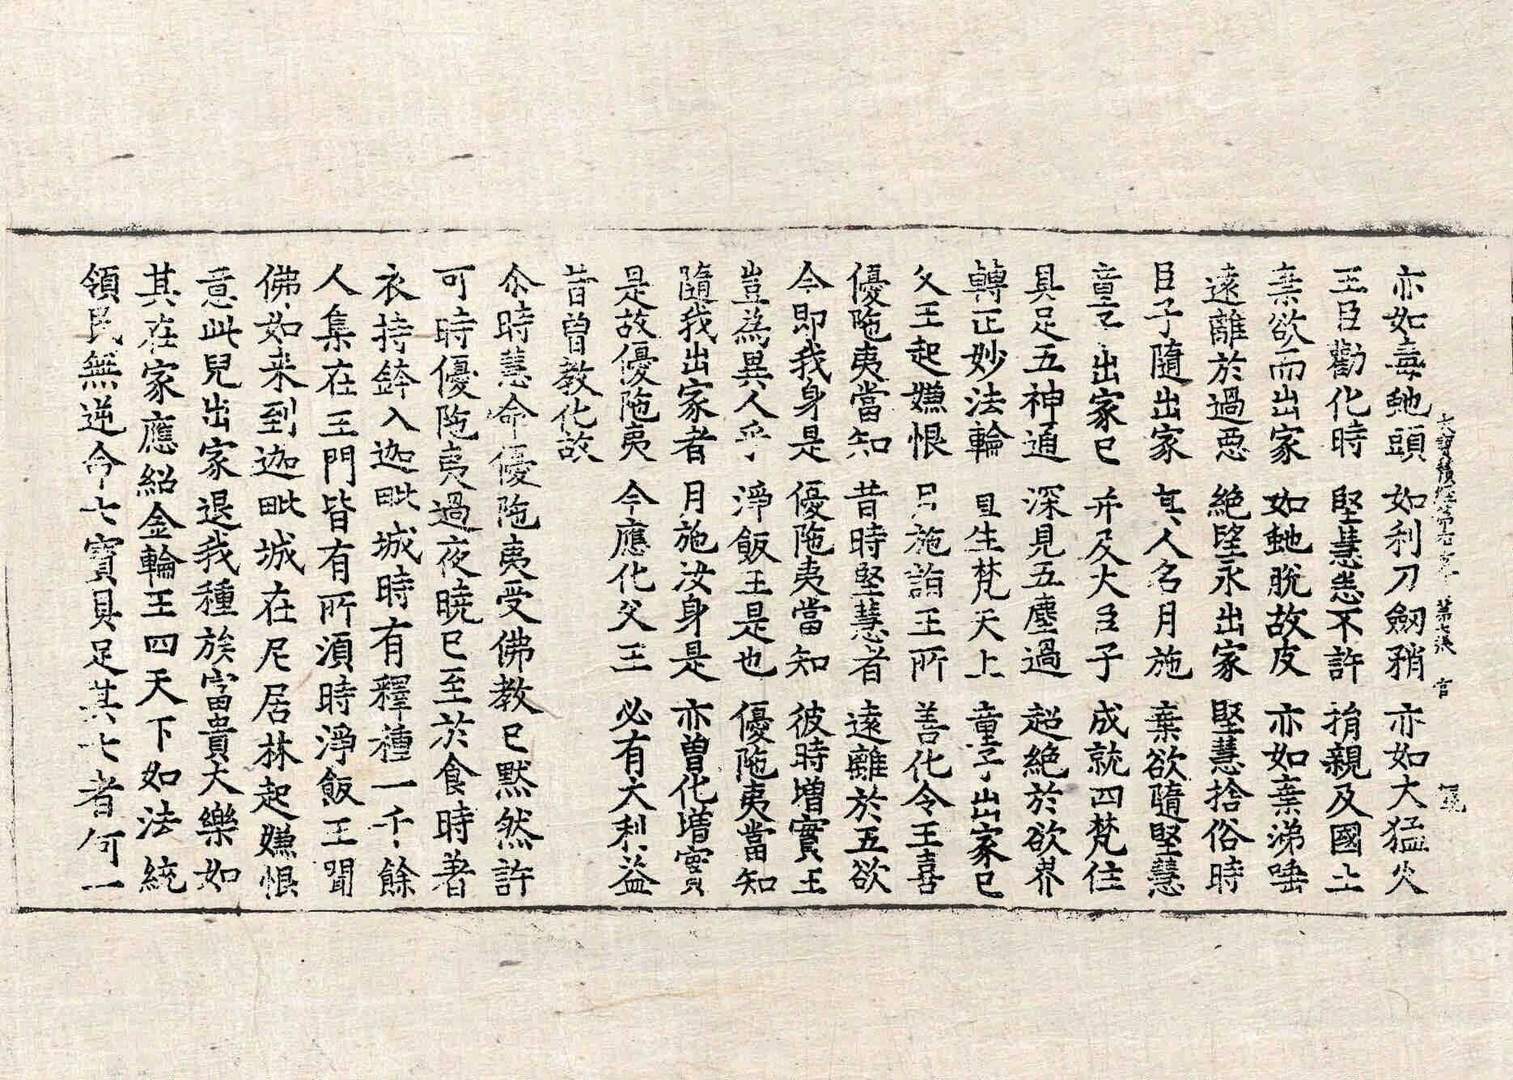 亦如毒虵頭 如利刀劒矟 亦如大猛火
王臣勸化時 堅慧恚不許 捐親及國土
棄欲而出家 如虵脫故皮 亦如棄涕唾
遠離於過惡 絶望永出家 堅慧捨俗時
臣子隨出家 其人名月施 棄欲隨堅慧
童子出家已 并及大臣子 成就四梵住
具足五神通 深見五塵過 超絶於欲界
轉正妙法輪 且生梵天上 童子出家已
父王起嫌恨 月施詣王所 善化令王喜
優陁夷當知 昔時堅慧者 遠離於五欲
今即我身是 優陁夷當知 彼時增實王
豈為異人乎 淨飯王是也 優陁夷當知
隨我出家者 月施汝身是 亦曾化增實
是故優陁夷 今應化父王 必有大利益
昔曾教化故
尒時慧命優陁夷受佛教已默然許
可時優陁夷過夜曉已至於食時著
衣持鉢入迦毗城時有釋種一千餘
人集在王門皆有所湏時淨飯王聞
佛如来到迦毗城在尼居林起嫌恨
意此兒出家退我種族富貴大樂如
其在家應紹金輪王四天下如法統
領民無逆命七寶具足其七者何一